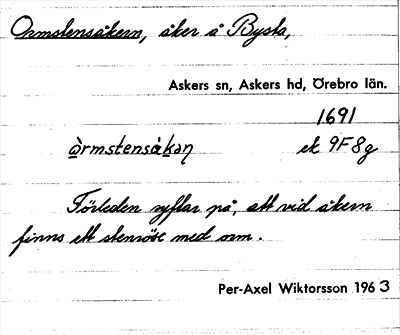 Ormstensåkern, åker å Bysta,
Askers sn, Askers hd, Örebro län.
1691
ek 9F8g
òrmstensåkəṇ
Förleden syftar på, att vid åkern
finns ett stenröse med orm.
Per-Axel Wiktorsson 1963